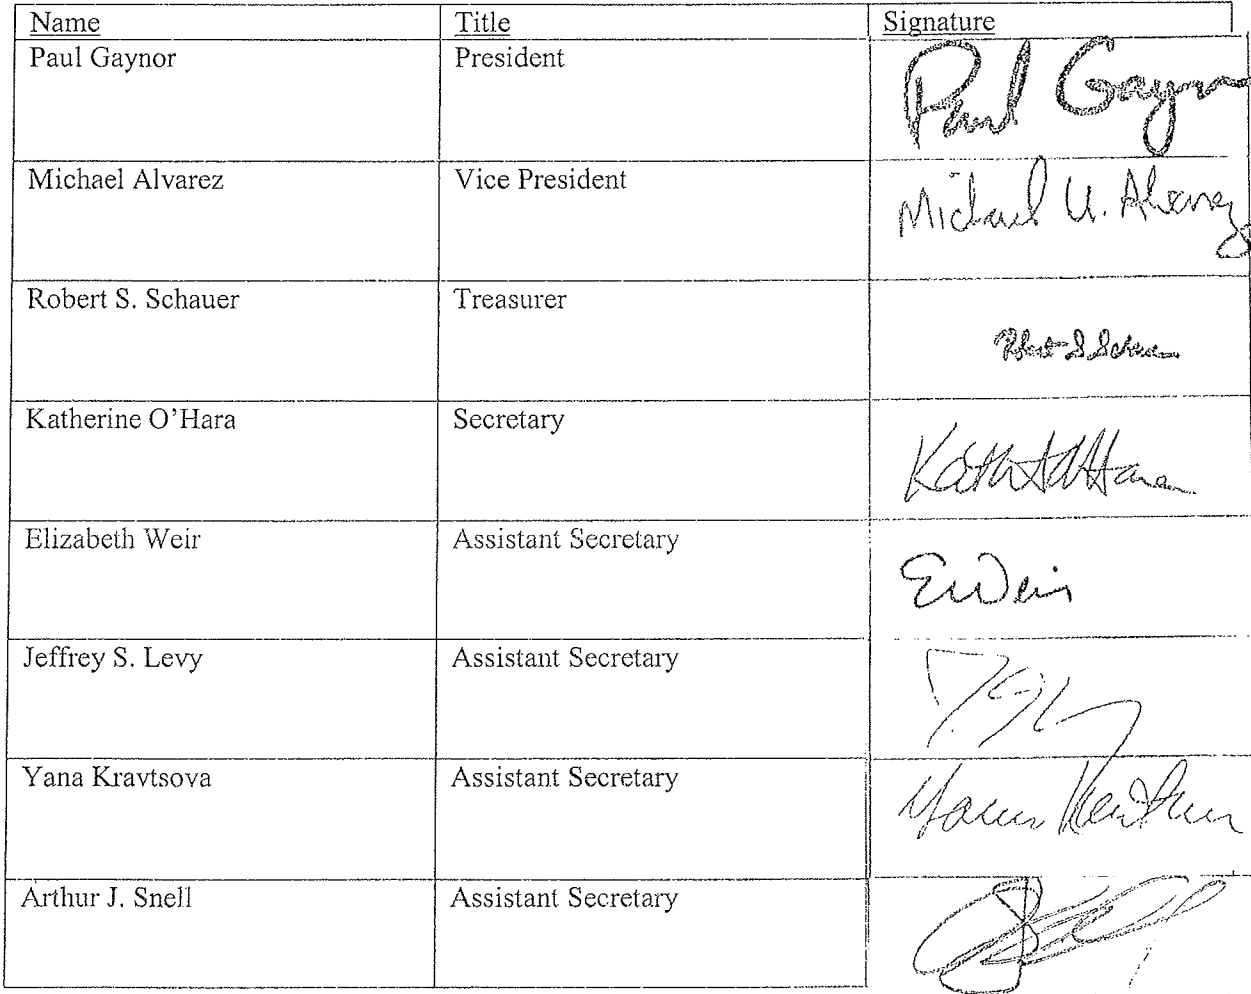 Name Title Signature
Paul Gaynor President Paul Gaynor
Michael Alvarez Vice President Michael U. Alvarez
Robert S. Schauer Treasurer Robert S Schauer
Katherine O'Hara Secretary
Elizabeth Weir Assistant Secretary EWeir
Jeffrey S. Levy Assistant Secretary
Yana Kravtsova Assistant Secretary
Arthur J. Snell Assistant Secretary